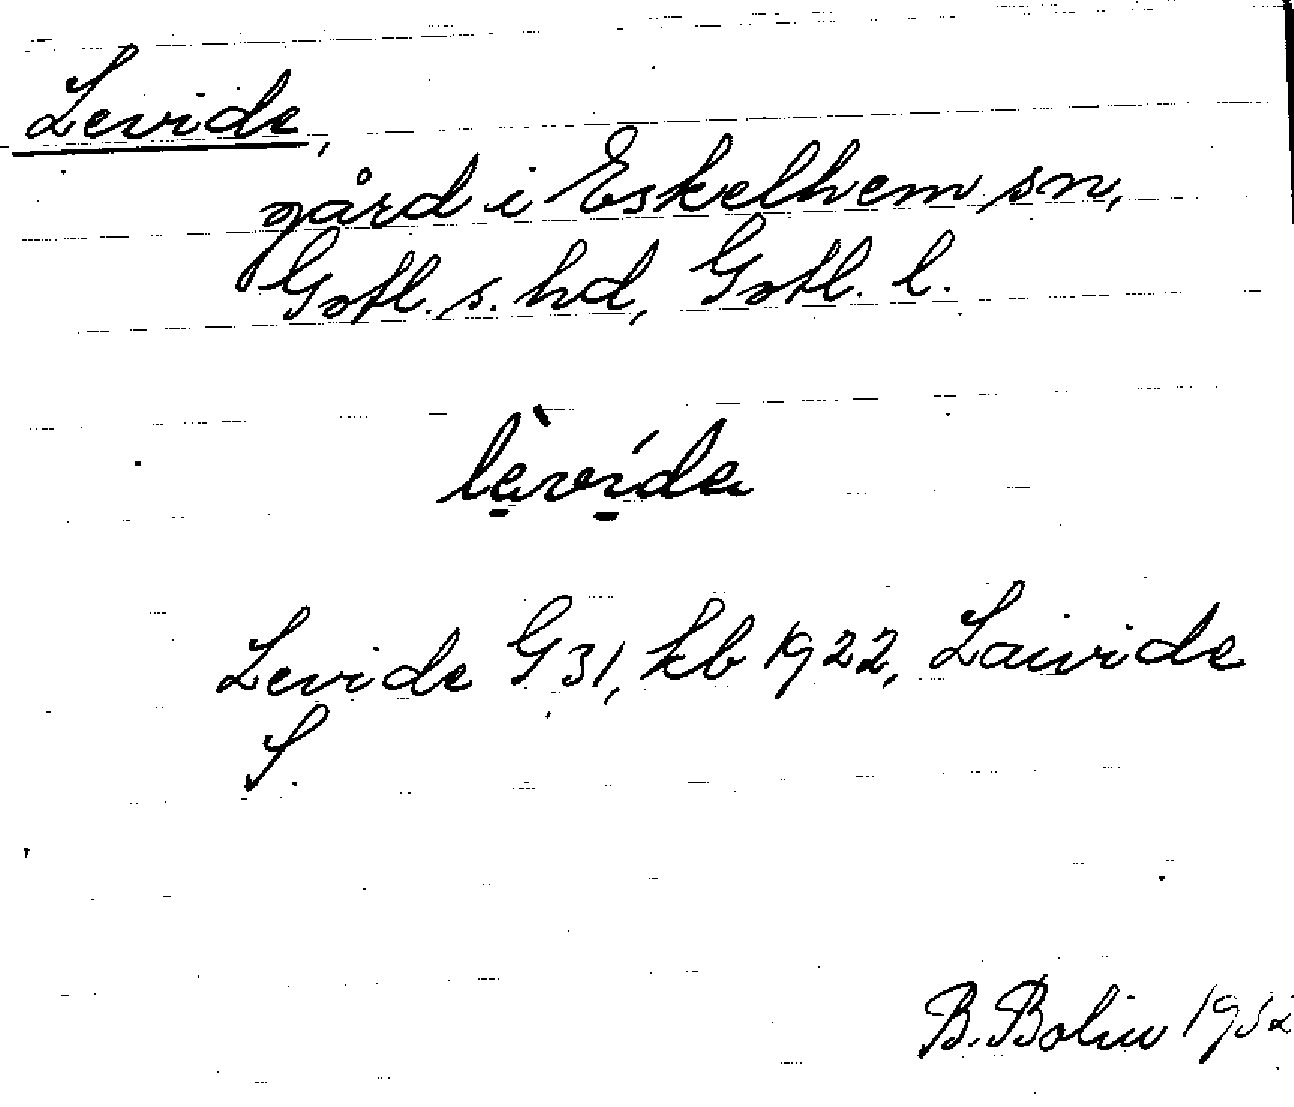 Levide,
gård i Eskelhem sn,
Gotl. s. hd, Gotl. l.
lèvída
Levide G 31, kb 1922, Lauvide
S.
B. Bolin 1932